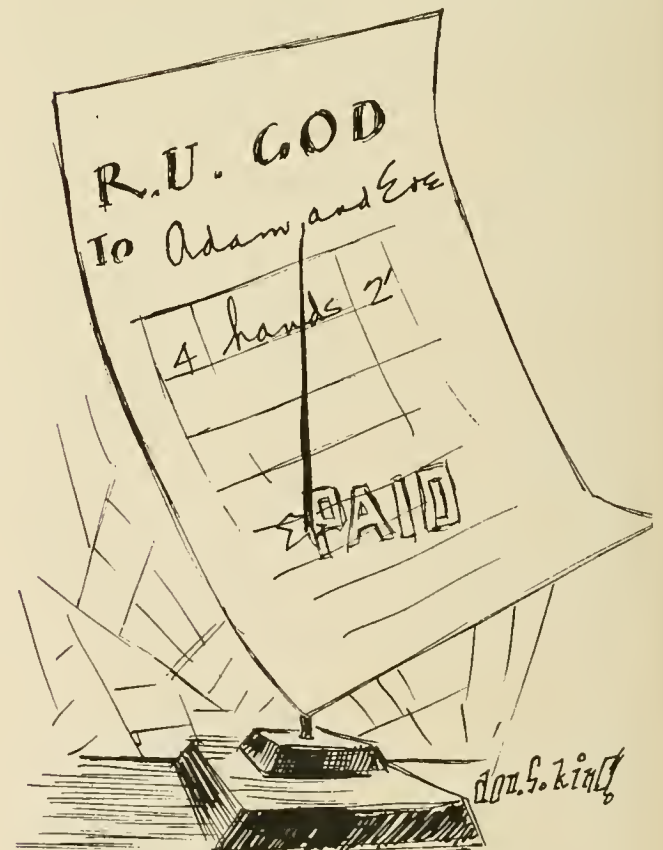 R.U. GOD
To Adam and Eve
4 hands 2
PAID
don.S.king